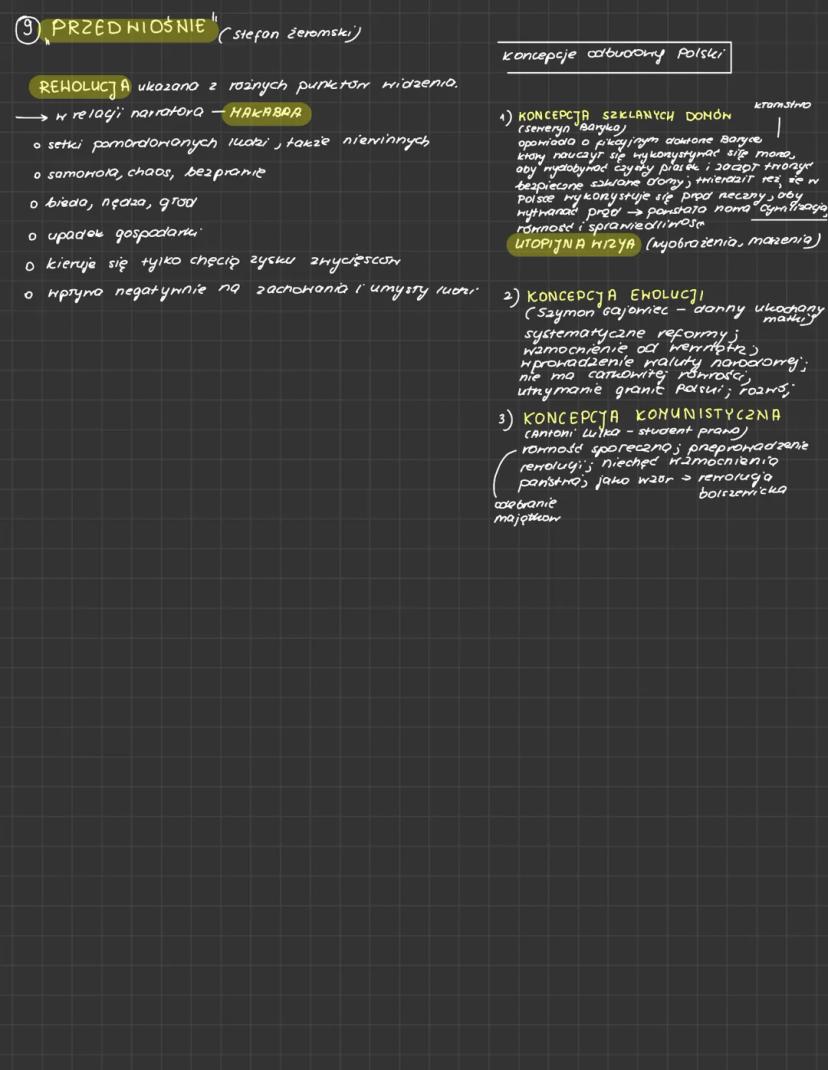 9 "PRZEDWIOŚNIE" (Stefan Żeromski)
REWOLUCJA ukazana z rożnych punktów widzenia.
→ w relacji narratora — MAKABRA
o setki pomordowanych ludzi, także niewinnych
o samowola, chaos, bezprawie
o bieda, nędza, głód
o upadek gospodarki
o kieruje się tylko chęcią zysku zwycięsców
o wpływa negatywnie na zachowania i umysły ludzi
Koncepcje odbudowy Polski
kłamstwo
1) KONCEPCJA SZKLANYCH DOMÓW
(Seweryn Baryka)
opowiada o fikcyjnym doktorze Baryce,
który nauczył się wykorzystywać siłę morza,
aby wydobywać czysty piasek i zaczął tworzyć
bezpieczne szklane domy; twierdził też, że w
Polsce wykorzystuje się prąd rzeczny, aby
wytwarzać prąd → powstała nowa cywilizacja,
równość i sprawiedliwość
UTOPIJNA WIZJA (wyobrażenia, marzenia)
2) KONCEPCJA EWOLUCJI
(Szymon Gajowiec – dawny ukochany
matki)
systematyczne reformy;
wzmocnienie od wewnątrz;
wprowadzenie waluty narodowej;
nie ma całkowitej równości;
utrzymanie granic Polski; rozwój
3) KONCEPCJA KOMUNISTYCZNA
(Antoni Lulka – student prawa)
równość społeczna; przeprowadzenie
rewolucji; niechęć wzmocnienia
państwa; jako wzór → rewolucja
bolszewicka
odebranie
majątków